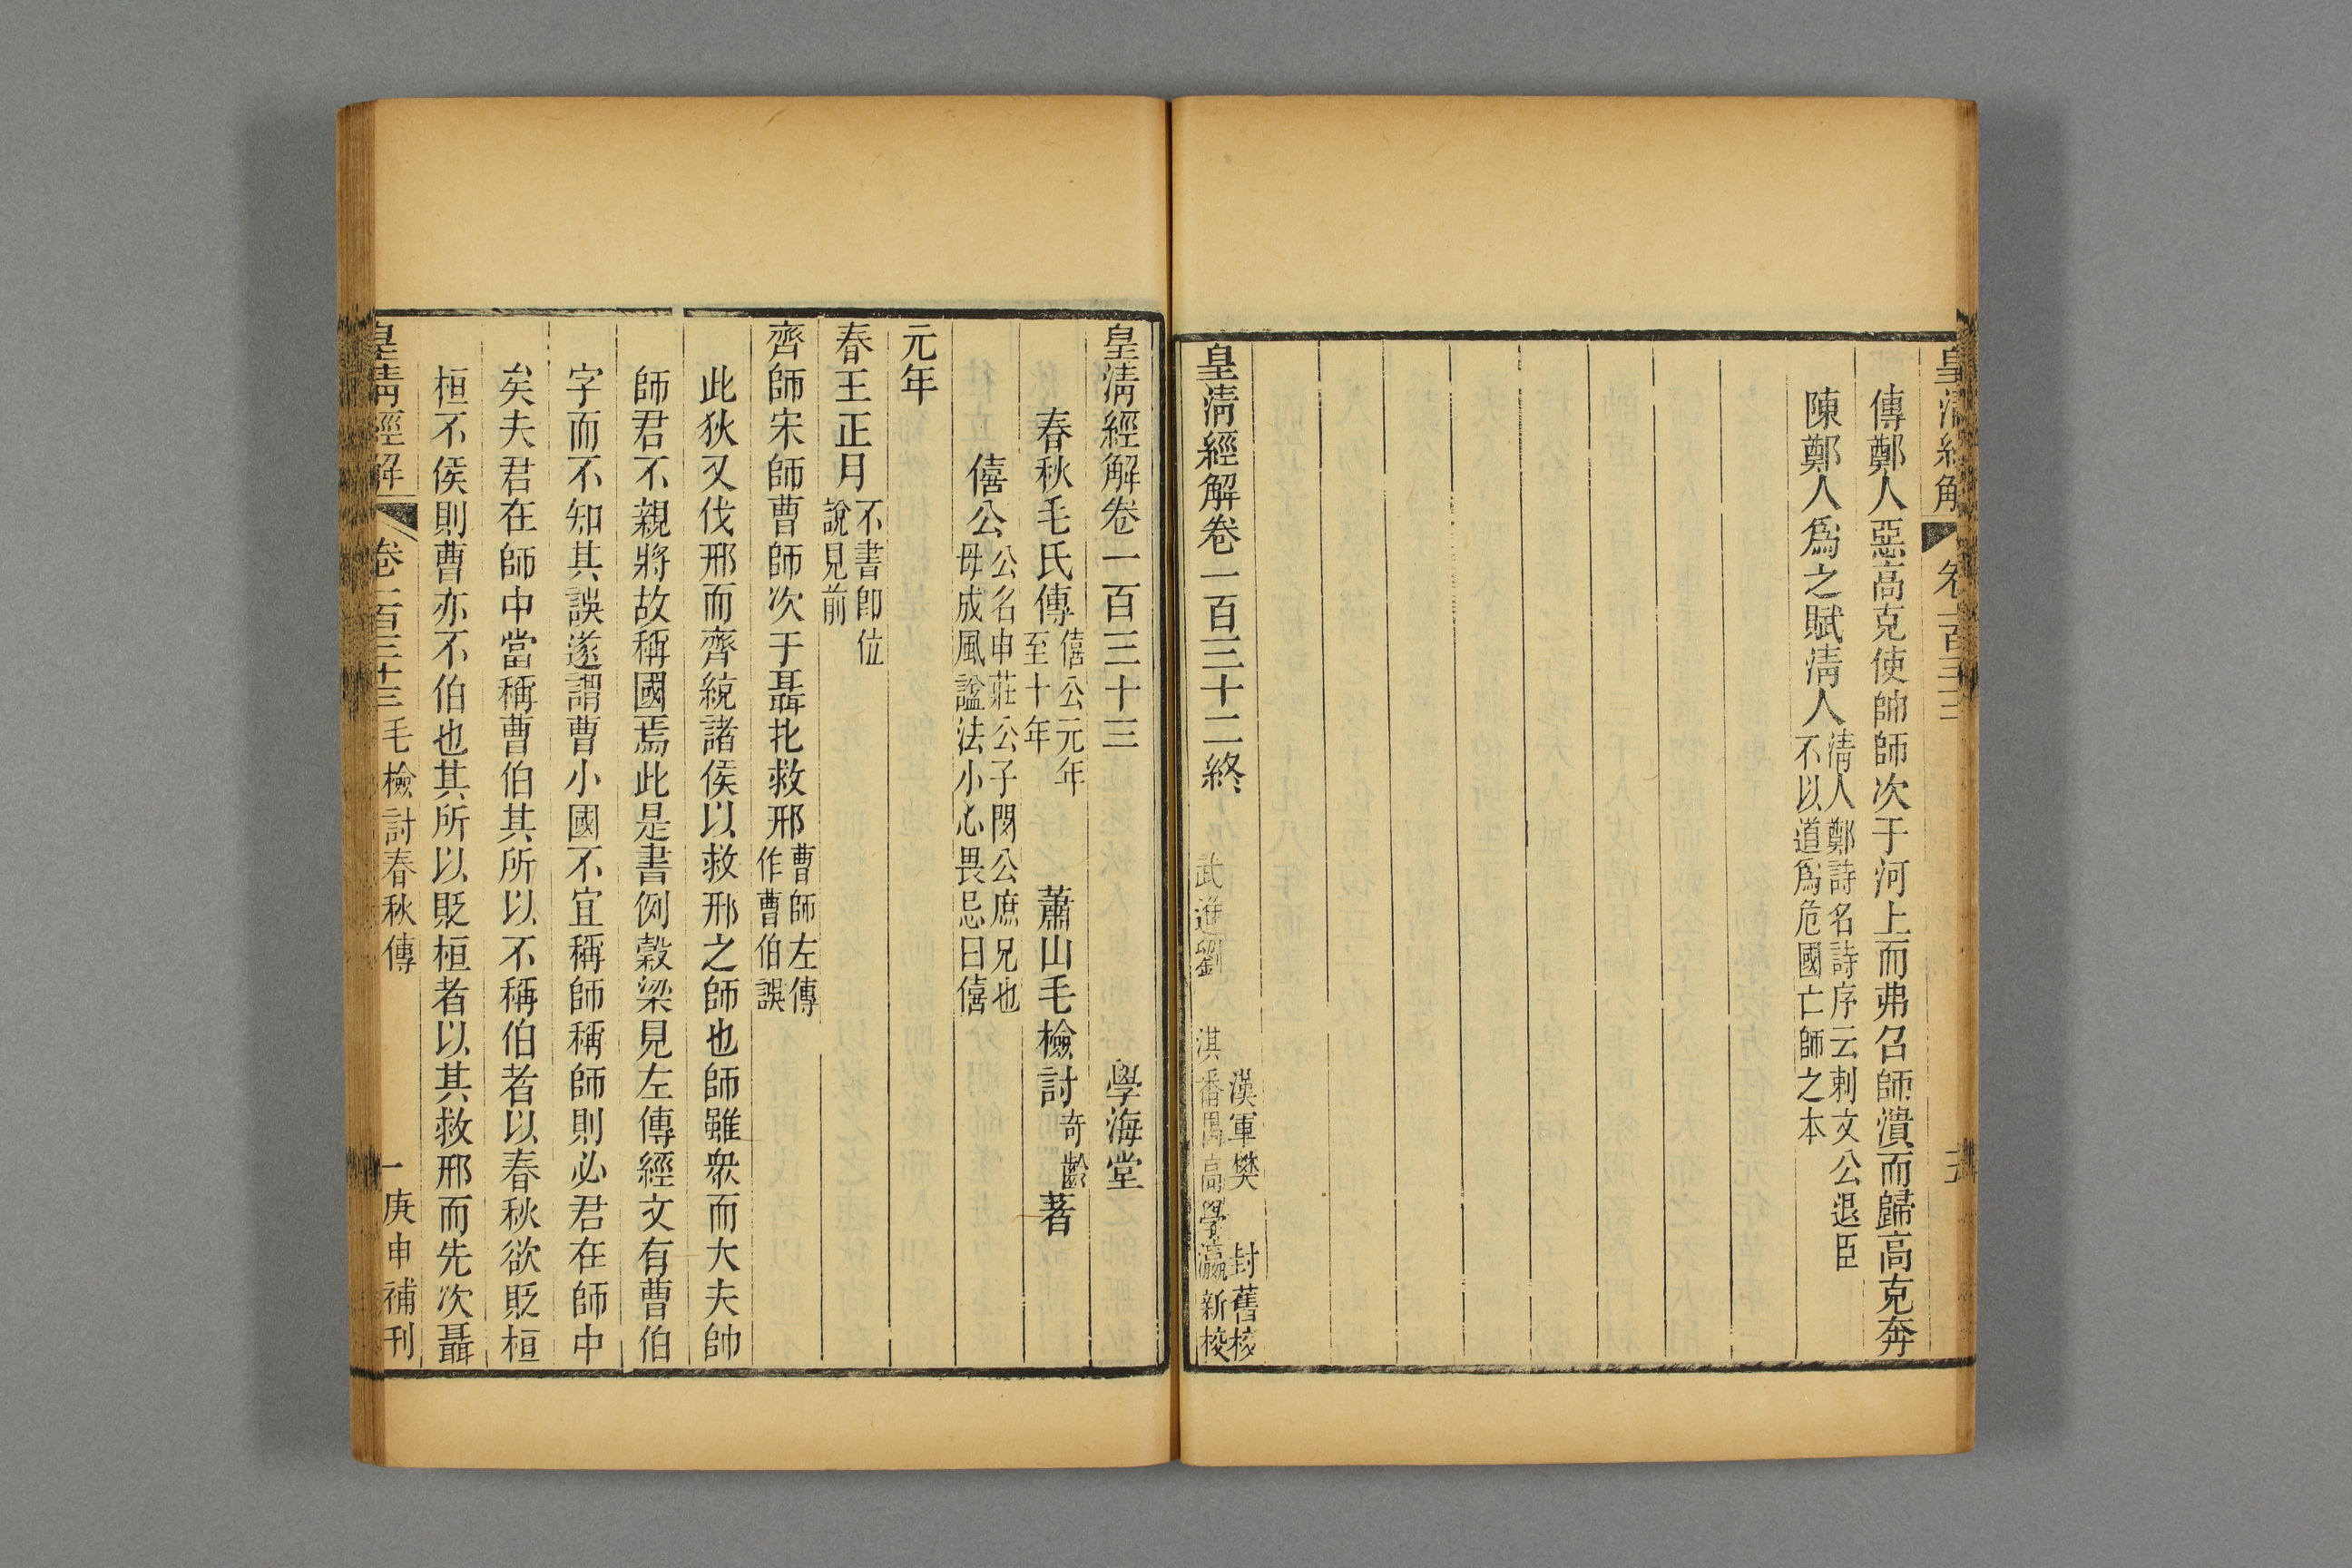 皇清經解 卷一百三十二
傳鄭人惡高克使帥師次于河上而弗召師潰而歸高克奔
陳鄭人爲之賦清人清人鄭詩名詩序云刺文公退臣
不以道爲危國亡師之本
漢軍樊封舊校
皇清經解卷一百三十二終 武進劉淇番禺高學瀛新校
皇清經解卷一百三十三 學海堂
春秋毛氏傳僖公元年
至十年 蕭山毛檢討奇齡著
僖公公名申莊公子閔公庶兄也
母成風諡法小心畏忌曰僖
元年
春王正月不書卽位
說見前
齊師宋師曹師次于聶北救邢曹師左傳
作曹伯誤
此狄又伐邢而齊統諸侯以救邢之師也師雖衆而大夫帥
師君不親將故稱國焉此是書例穀梁見左傳經文有曹伯
字而不知其誤遂謂曹小國不宜稱師稱師則必君在師中
矣夫君在師中當稱曹伯其所以不稱伯者以春秋欲貶桓
桓不侯則曹亦不伯也其所以貶桓者以其救邢而先次聶
皇清經解 卷一百三十三 毛檢討春秋傳 一 庚申補刊